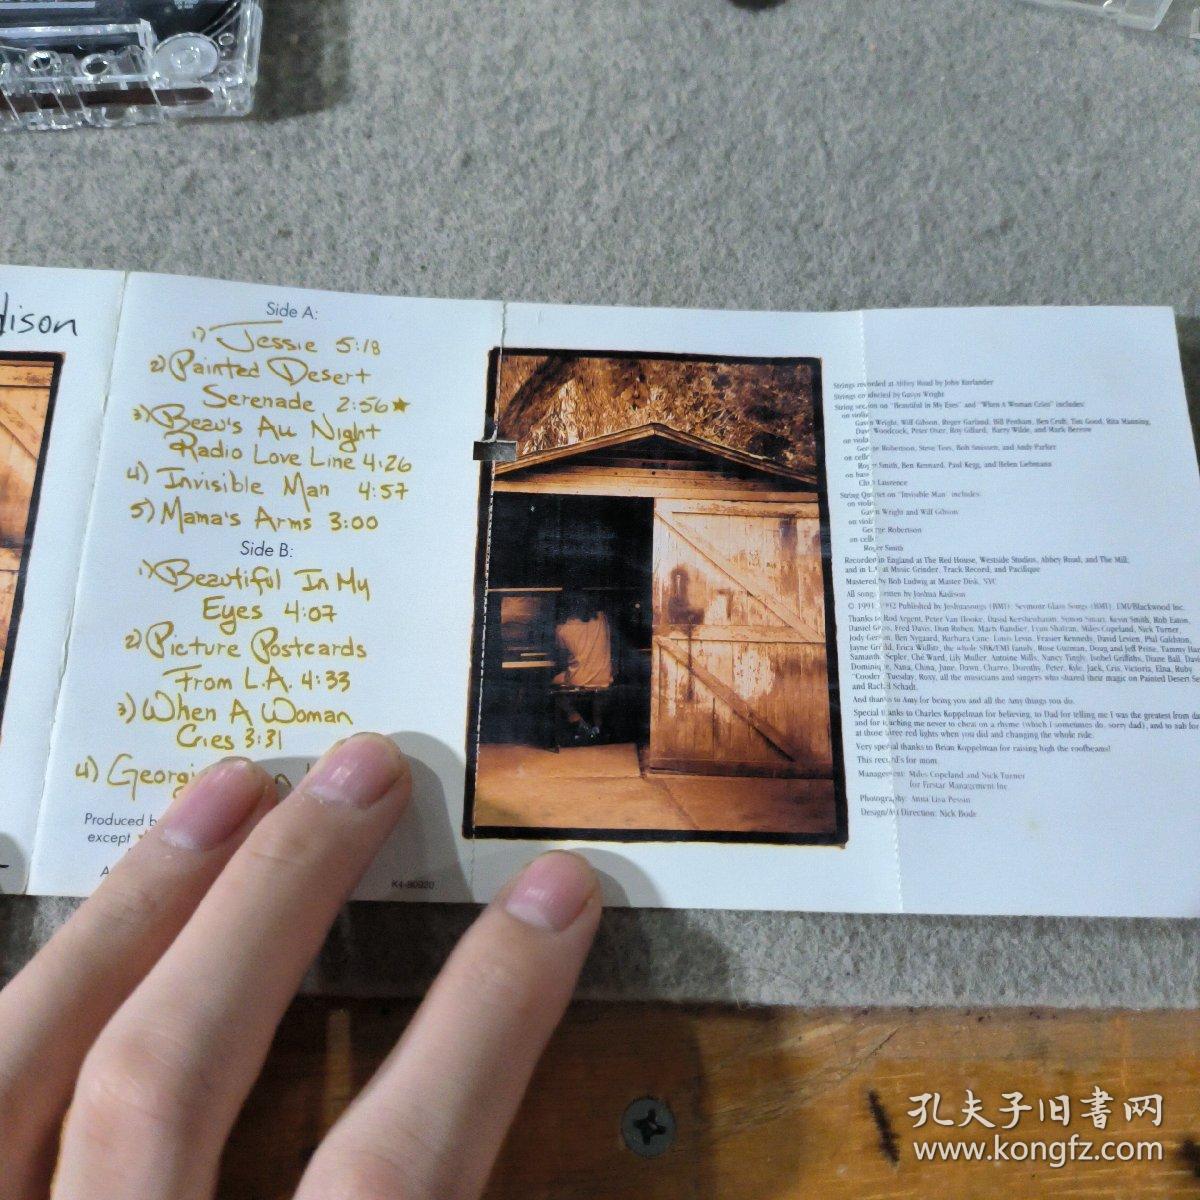 dison
Side A:
1) Jessie 5:18
2) Painted Desert
Serenade 2:56★
3) Beau's All Night
Radio Love Line 4:26
4) Invisible Man 4:57
5) Mama's Arms 3:00
Side B:
1) Beautiful In My
Eyes 4:07
2) Picture Postcards
From L.A. 4:33
3) When A Woman
Cries 3:31
4) Georgi
Produced b
except
A
K4-80920
Strings recorded at Abbey Road by John Kurlander
Strings conducted by Gavyn Wright
String section on "Beautiful in My Eyes" and "When A Woman Cries" includes:
on violin
Gavyn Wright, Wilf Gibson, Roger Garland, Bill Penham, Ben Cruft, Tim Good, Rita Manning,
Dave Woodcock, Peter Oxer, Roy Gillard, Barry Wilde, and
on viola
George Robertson, Steve Tees, Bob Smissen, and Andy Parker
on cello
Roger Smith, Ben Kennard, Paul Kegg, and Helen Liebmann
on bass
Chris Laurence
String Quartet on "Invisible Man" includes:
on violin
Gavyn Wright and Wilf Gibson
on viola
George Robertson
on cello
Roger Smith
Recorded in England at The Red House, Westside Studios, Abbey Road, and The Mill;
and in L.A. at Music Grinder, Track Record, and Pacifique
Mastered by Bob Ludwig at Master Disk, NYC
All songs written by Joshua Kadison
© 1991, 1992 Published by Joshuasongs (BMI) Seymour Glass Songs (BMI) EMI/Blackwood Inc.
Thanks to Rod Argent, Peter Van Hooke, David Kershenbaum, Simon Smart, Kevin Smith, Rob Eaton,
Daniel Fred Davis, Don Rubin, Marty Bandier, Evan Miles Copeland, Nick Turner,
Jody Ben Nygaard, Barbara Cane, Louis Levin, Frasier Kennedy, David Levien, Phil
Jayne Erica the whole SBK/EMI family, Rose Guzman, Doug and Jeff Tammy Har
Samantha Ché Ward, Lily Muller, Antoine Mills, Nancy Isobel Griffiths, Diane Ball, Dav
Dominique, Nana, China, June, Dawn, Charro, Dorothy, Peter, Kyle, Jack, Cris, Victoria, Elna, Ruby
"Cooder" Tuesday, Roxy, all the musicians and singers who shared their magic on Painted Desert Se
and Rachel Schadt.
And thanks to Amy for being you and all the Amy things you do.
Special thanks to Charles Koppelman for believing, to Dad for telling me I was the greatest from da
and for teaching me never to cheat on a rhyme (which I sometimes do, sorry dad), and to for
at those three red lights when you did and changing the whole ride.
Very special thanks to Brian Koppelman for raising high the roofbeams!
This record's for mom.
Management: Miles Copeland and Nick Turner
for Firstar Management Inc.
Photography: Anna Lisa Pessin
Design/Art Direction: Nick Bode
孔夫子旧書网
www.kongfz.com